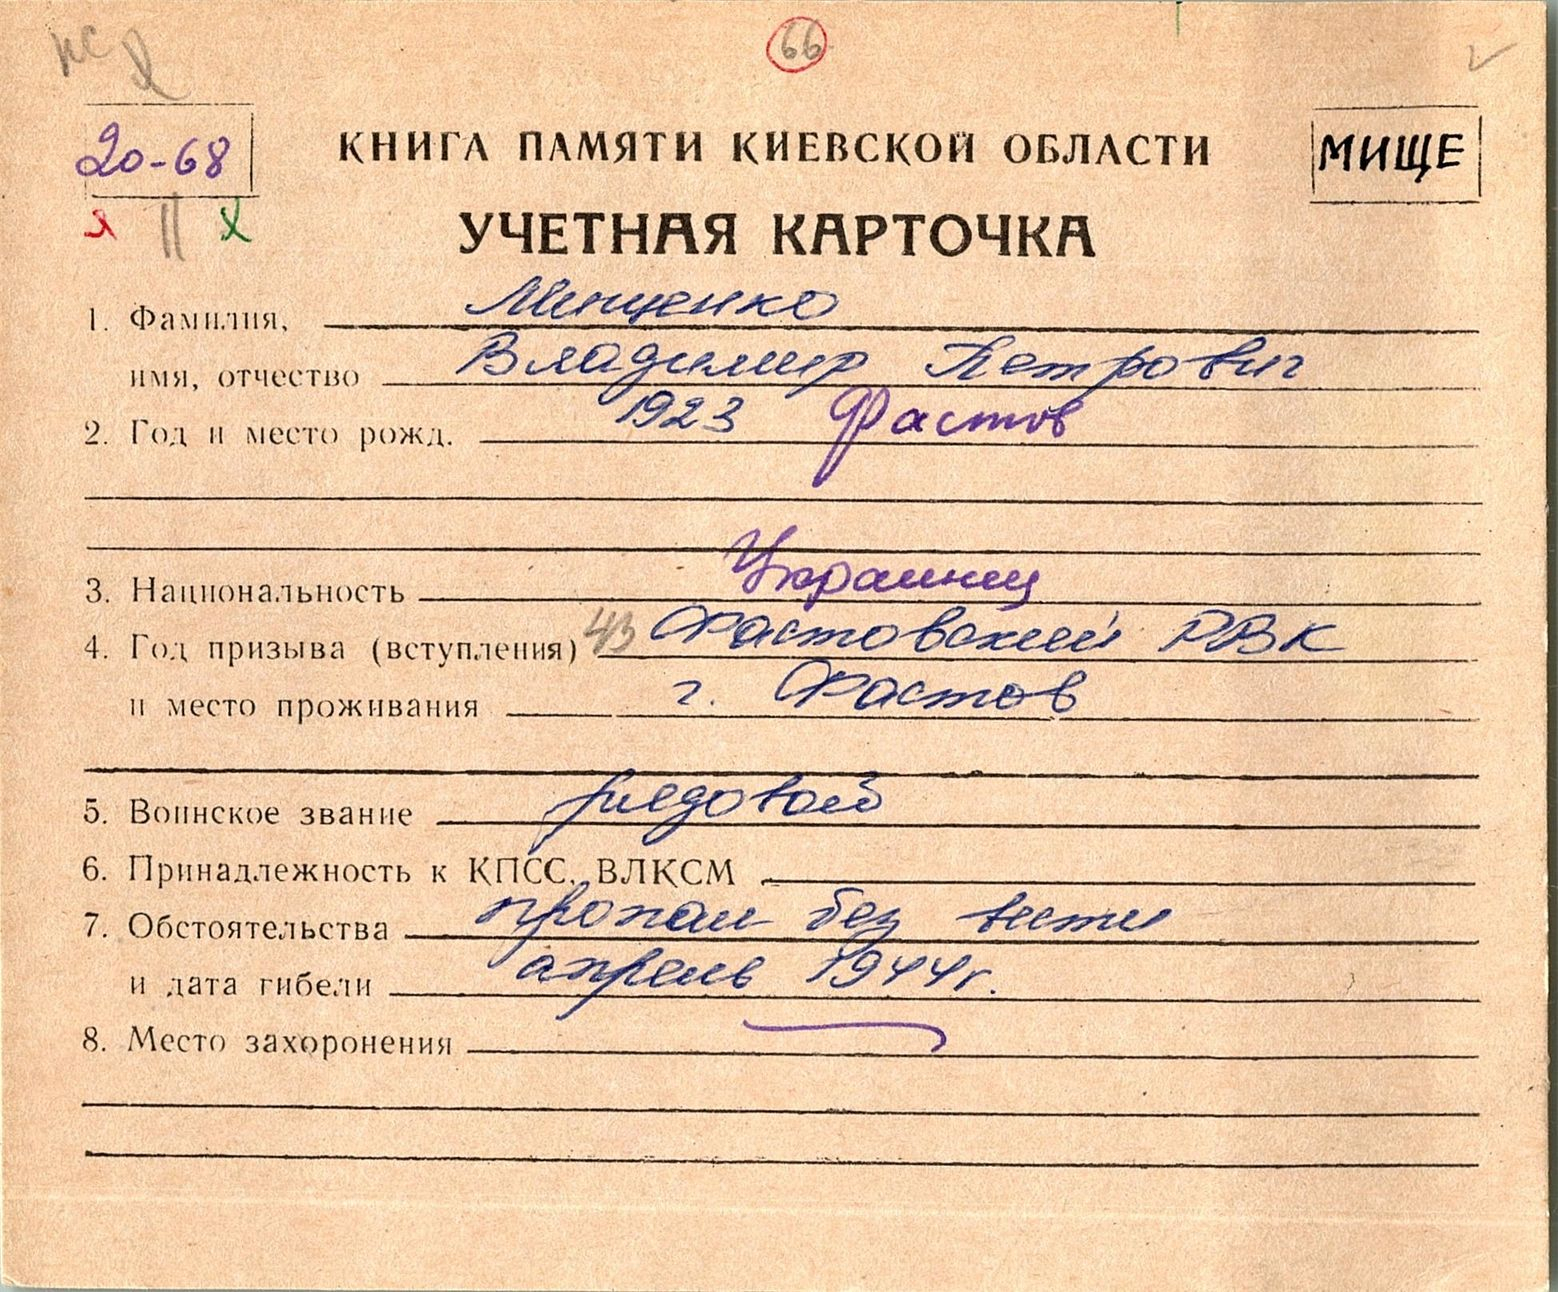 66
20-68
КНИГА ПАМЯТИ КИЕВСКОЙ ОБЛАСТИ
МИЩЕ
УЧЕТНАЯ КАРТОЧКА
1. Фамилия, Мищенко
имя, отчество Владимир Петрович
2. Год и место рожд. 1923 Фастов
3. Национальность Украинец
4. Год призыва (вступления) 43 Фастовский РВК
и место проживания г. Фастов
5. Воинское звание рядовой
6. Принадлежность к КПСС, ВЛКСМ
7. Обстоятельства пропал без вести
и дата гибели апрель 1944г.
8. Место захоронения